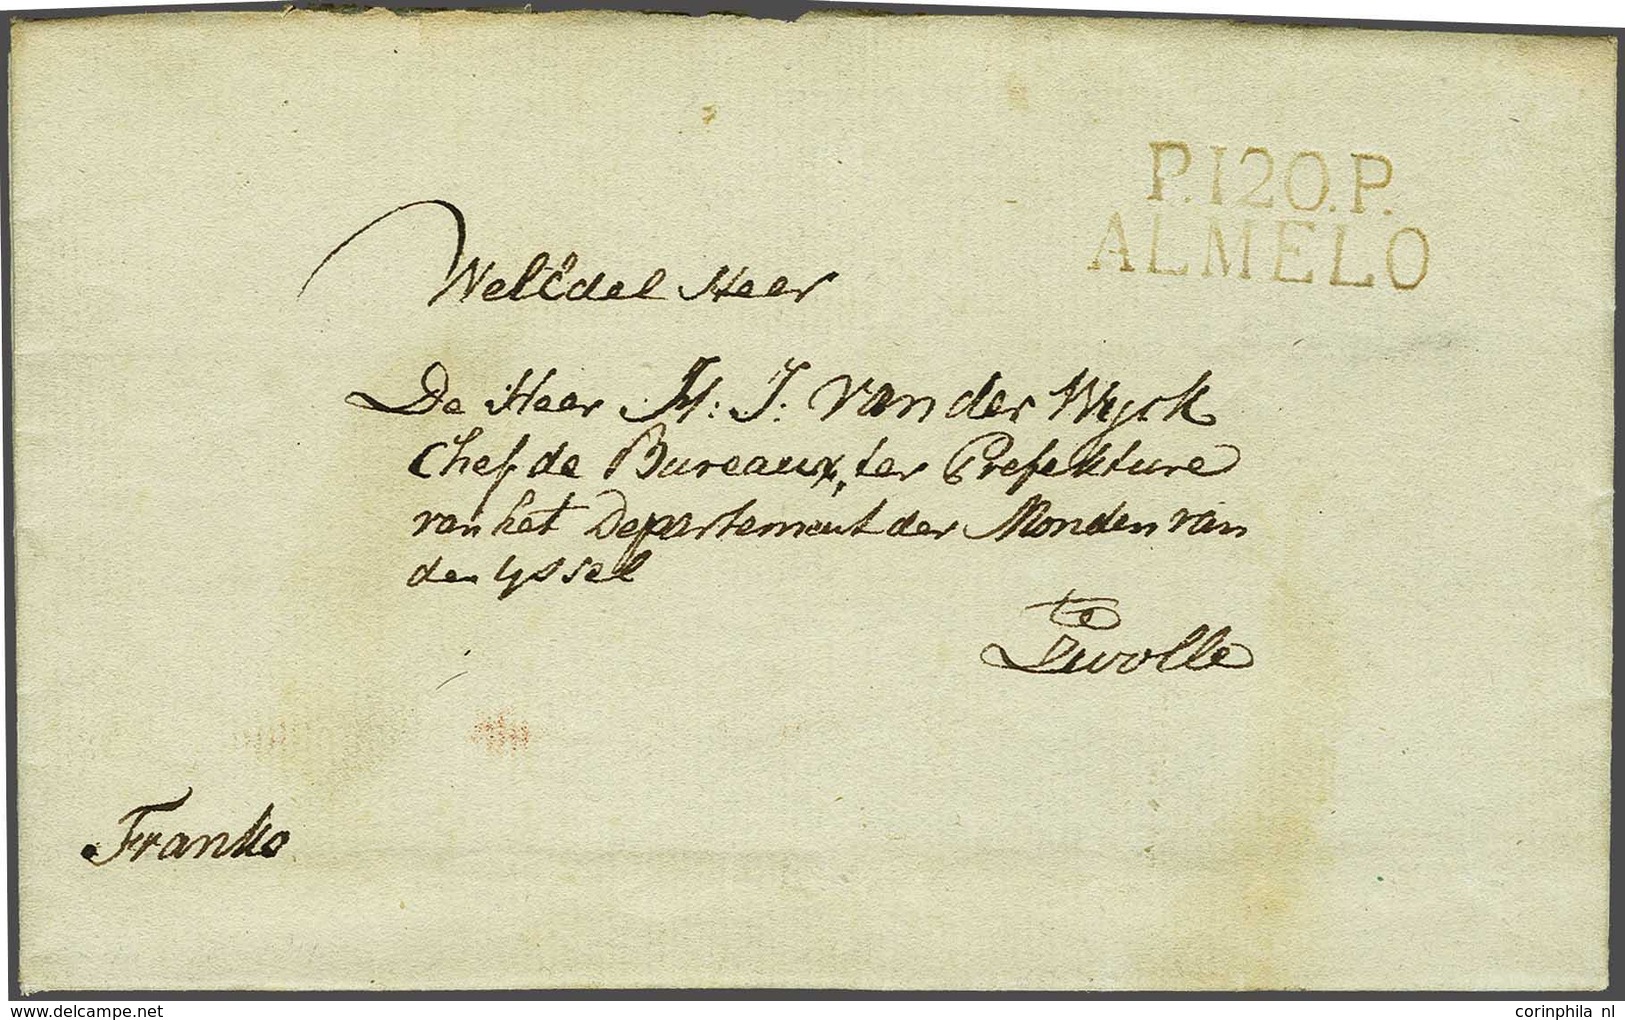 P.120.P.
ALMELO
WelEdel Heer
De Heer H: J: van der Wyck
Chef de Bureaux, ter Prefekture
van het Departement der Monden van
den Yssel
te
Zwolle
Franko
delcampe.net
corinphila nl